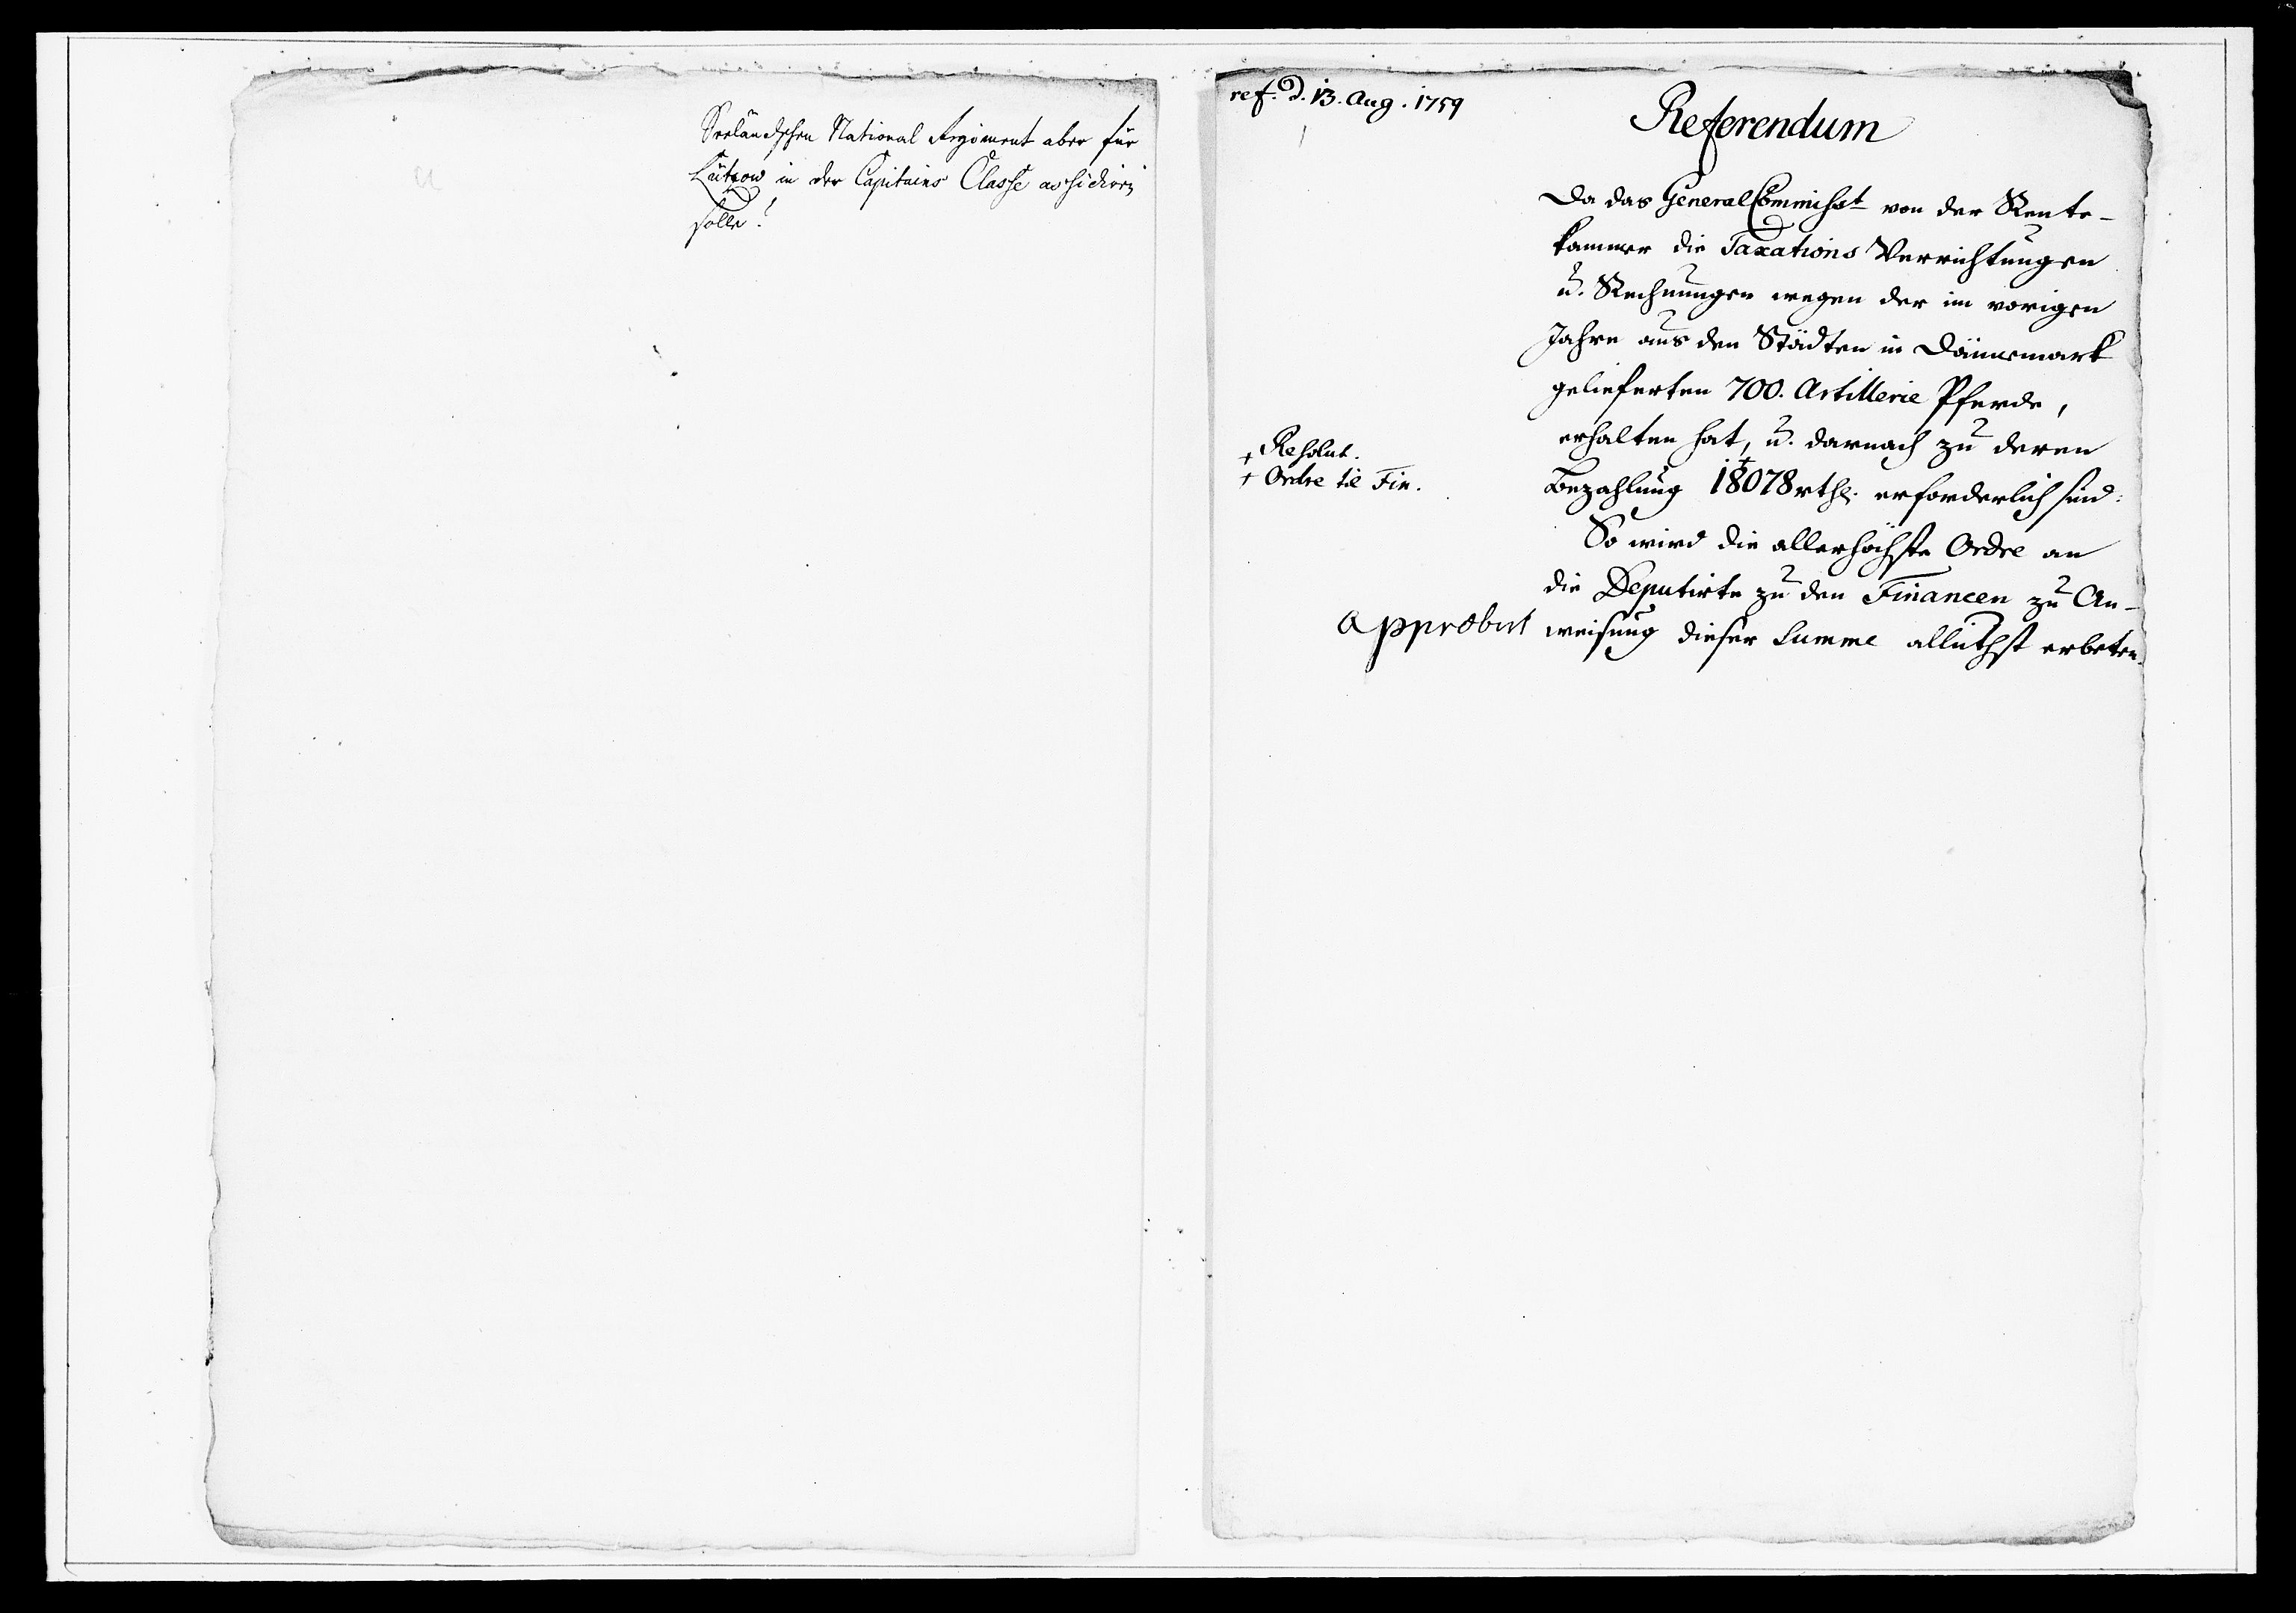 Seeländschen National Regiment aber für
Lützow in der Capitains Classe assidiren
solle?
ref. d. 13. Aug. 1759
Referendum
Da das General Commissat von der Rente-
kammer die Taxations Verrichtungen
u. Rechnungen wegen der im vorigen
Jahre aus den Städten in Dännemark
gelieferten 700. Artillerie Pferde,
erhalten hat, u. darnach zu deren
+ Resolut.
+ Ordre til Fin.
Bezahlung 18078 rthl. erforderlich sind:
So wird die allerhöchste Ordre an
die Deputirte zu den Financen zu An-
approbirt
weisung dieser Summe allunthst erbeten.